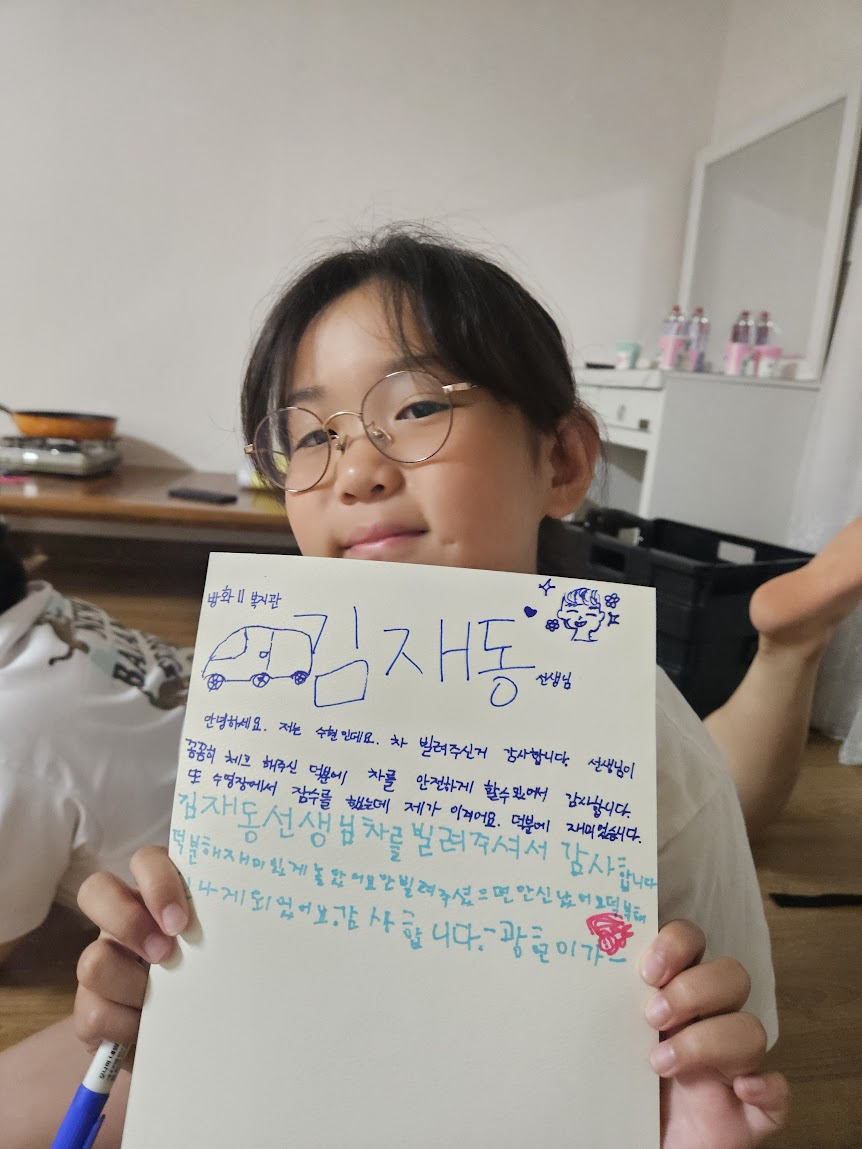 방화11 복지관
김재동 선생님
안녕하세요. 저는 수현인데요. 차 빌려주신거 감사합니다. 선생님이
꼼꼼히 체크 해주신 덕분에 차를 안전하게 탈수있어서 감사합니다.
또 수영장에서 잠수를 했는데 제가 이겨어요. 덕분에 재미있습니다.
김재동선생님차를빌려주셔서 감사합니다
덕분해재미있게놀았어요안빌려주셨으면안신났어요덕분해
나게되었어요.감사합니다.-광현이가-